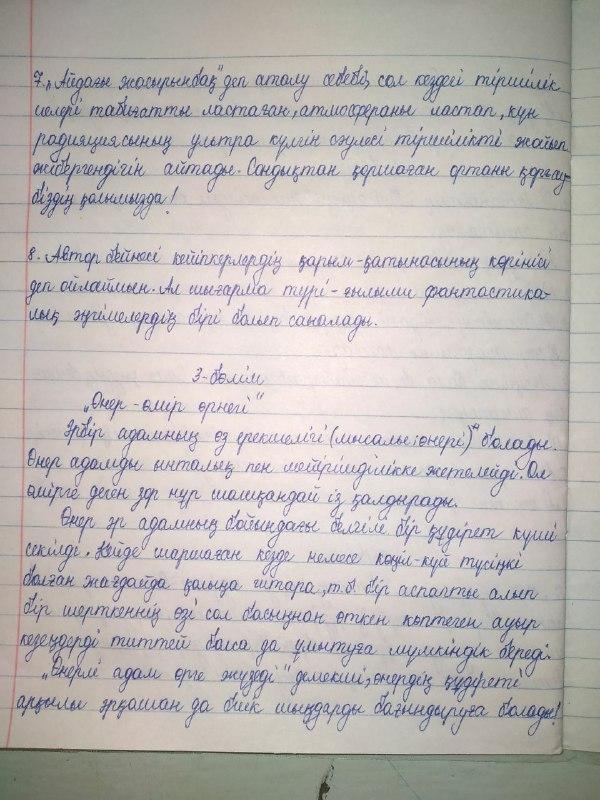 7. „Айдағы жасырынбақ" деп аталу себебі, сол кездегі тіршілік
иелері табиғатты ластаған, атмосфераны ластап, күн
радияциясының ультра күлгін сәулесі тіршілікті жойып
жібергендігін айтады. Сондықтан қоршаған ортаны қорғау-
біздің қолымызда!
8. Автор бейнесі кейіпкерлердің қарым-қатынасының көрінісі
деп ойлаймын. Ал шығарма түрі - ғылыми фантастика-
лық әңгімелердің бірі болып саналады.
3-бөлім
„Өнер - өмір өрнегі"
Әрбір адамның өз ерекшелігі (мысалы: өнері) болады.
Өнер адамды ынталық пен мейірімділікке жетелейді. Ол
өмірге деген зор нұр шашқандай із қалдырады.
Өнер әр адамның бойындағы белгілі бір құдірет күші
секілді. Кейде шаршаған кезде немесе көңіл-күй түсіңкі
болған жағдайда қолыңа гитара, т.б. бір аспапты алып
бір шерткеннің өзі сол басыңнан өткен көптеген ауыр
кезеңдерді титтей болса да ұмытуға мүмкіндік береді.
„Өнерлі адам өрге жүзеді" демекші, өнердің құдіреті
арқылы әрқашан да биік шыңдарды бағындыруға болады!